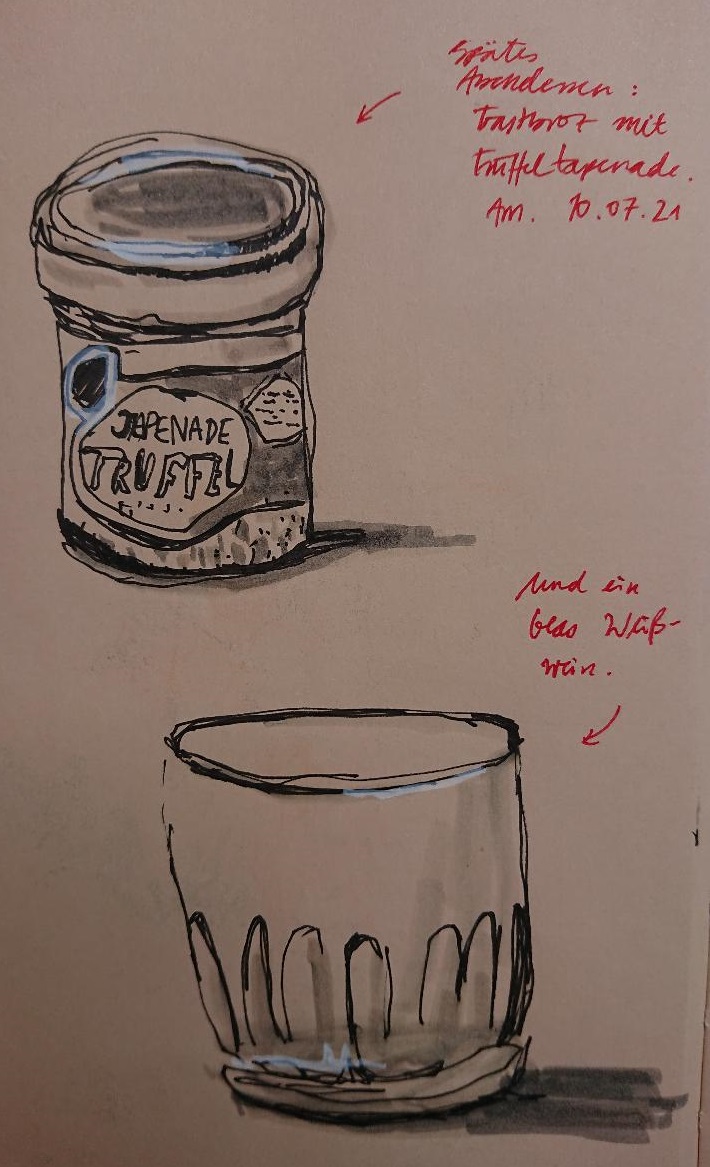 spätes
Abendessen :
Toastbrot mit
Trüffeltapenade.
Am. 10.07.21
TAPENADE
TRUFFEL
Und ein
Glas Weiß-
wein.